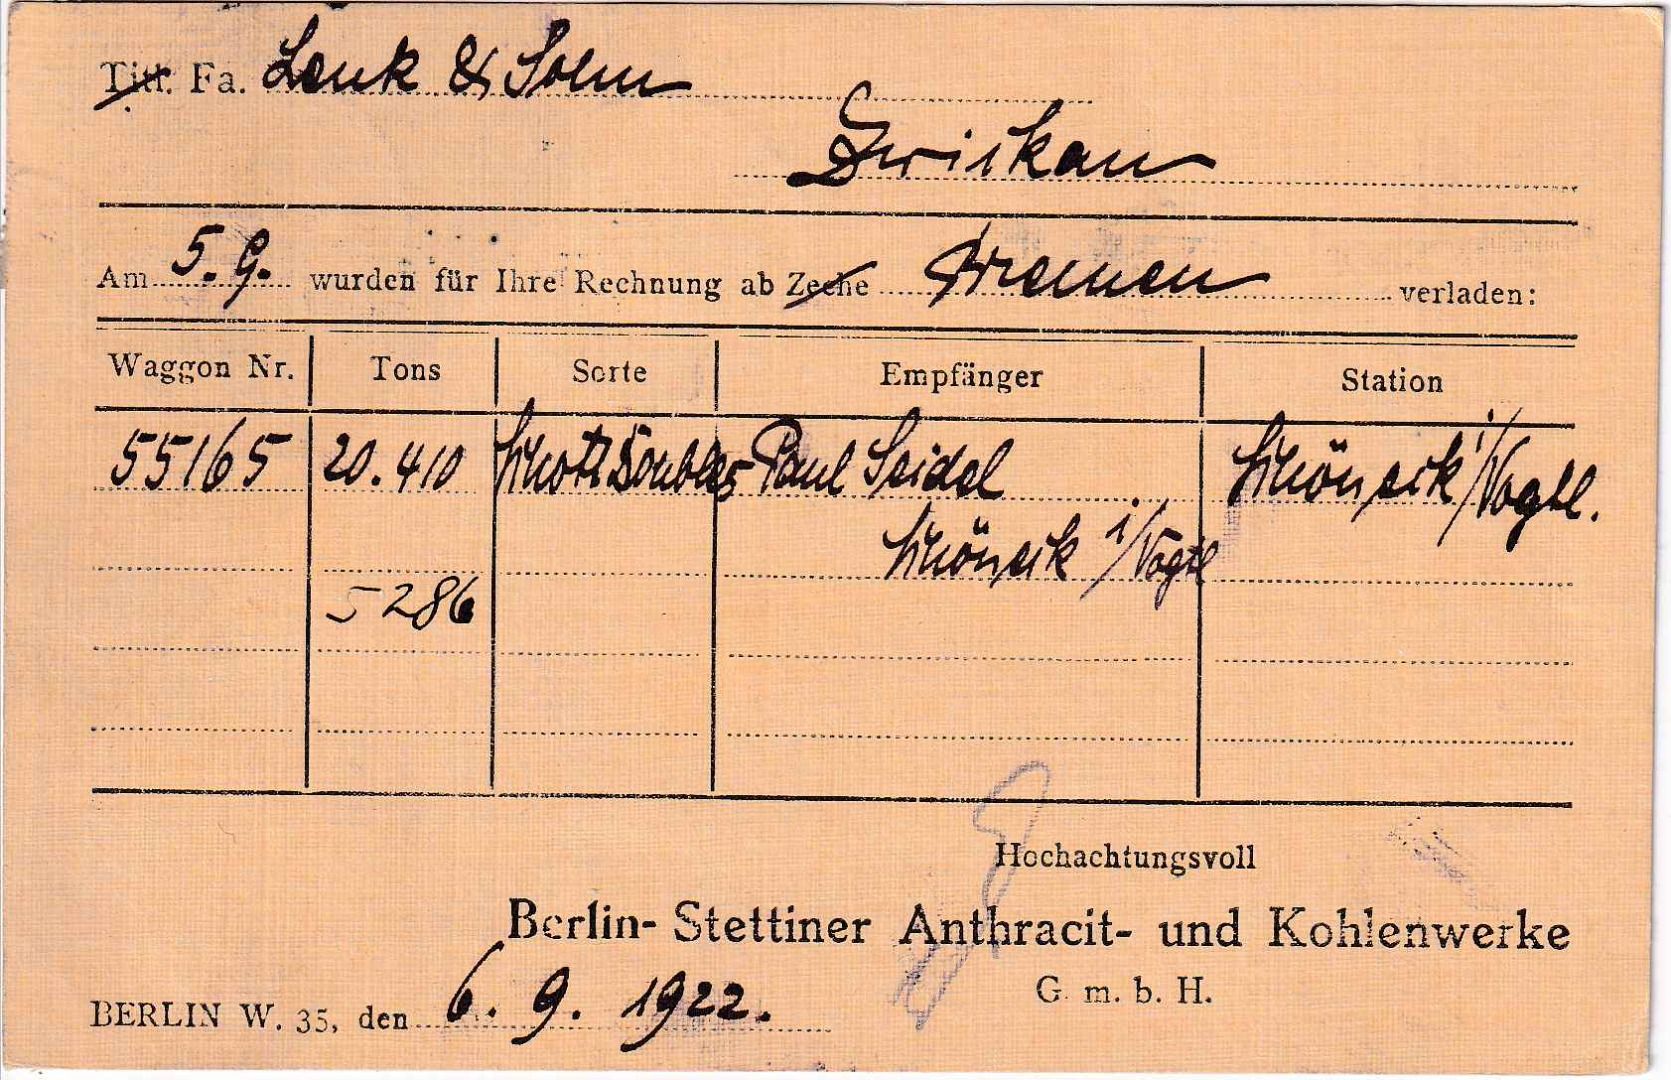 Titl. Fa. Lenk & Sohn
Zwickau
Am 5. 9. wurden für Ihre Rechnung ab Zeche Bremen verladen:
Waggon Nr. Tons Sorte Empfänger Station
55165 20.410 Schott Doubles Paul Seidel Schöneck i/Vogtl.
Schöneck i/Vogtl
5286
Hochachtungsvoll
Berlin-Stettiner Anthracit- und Kohlenwerke
G. m. b. H.
BERLIN W. 35, den 6. 9. 1922.